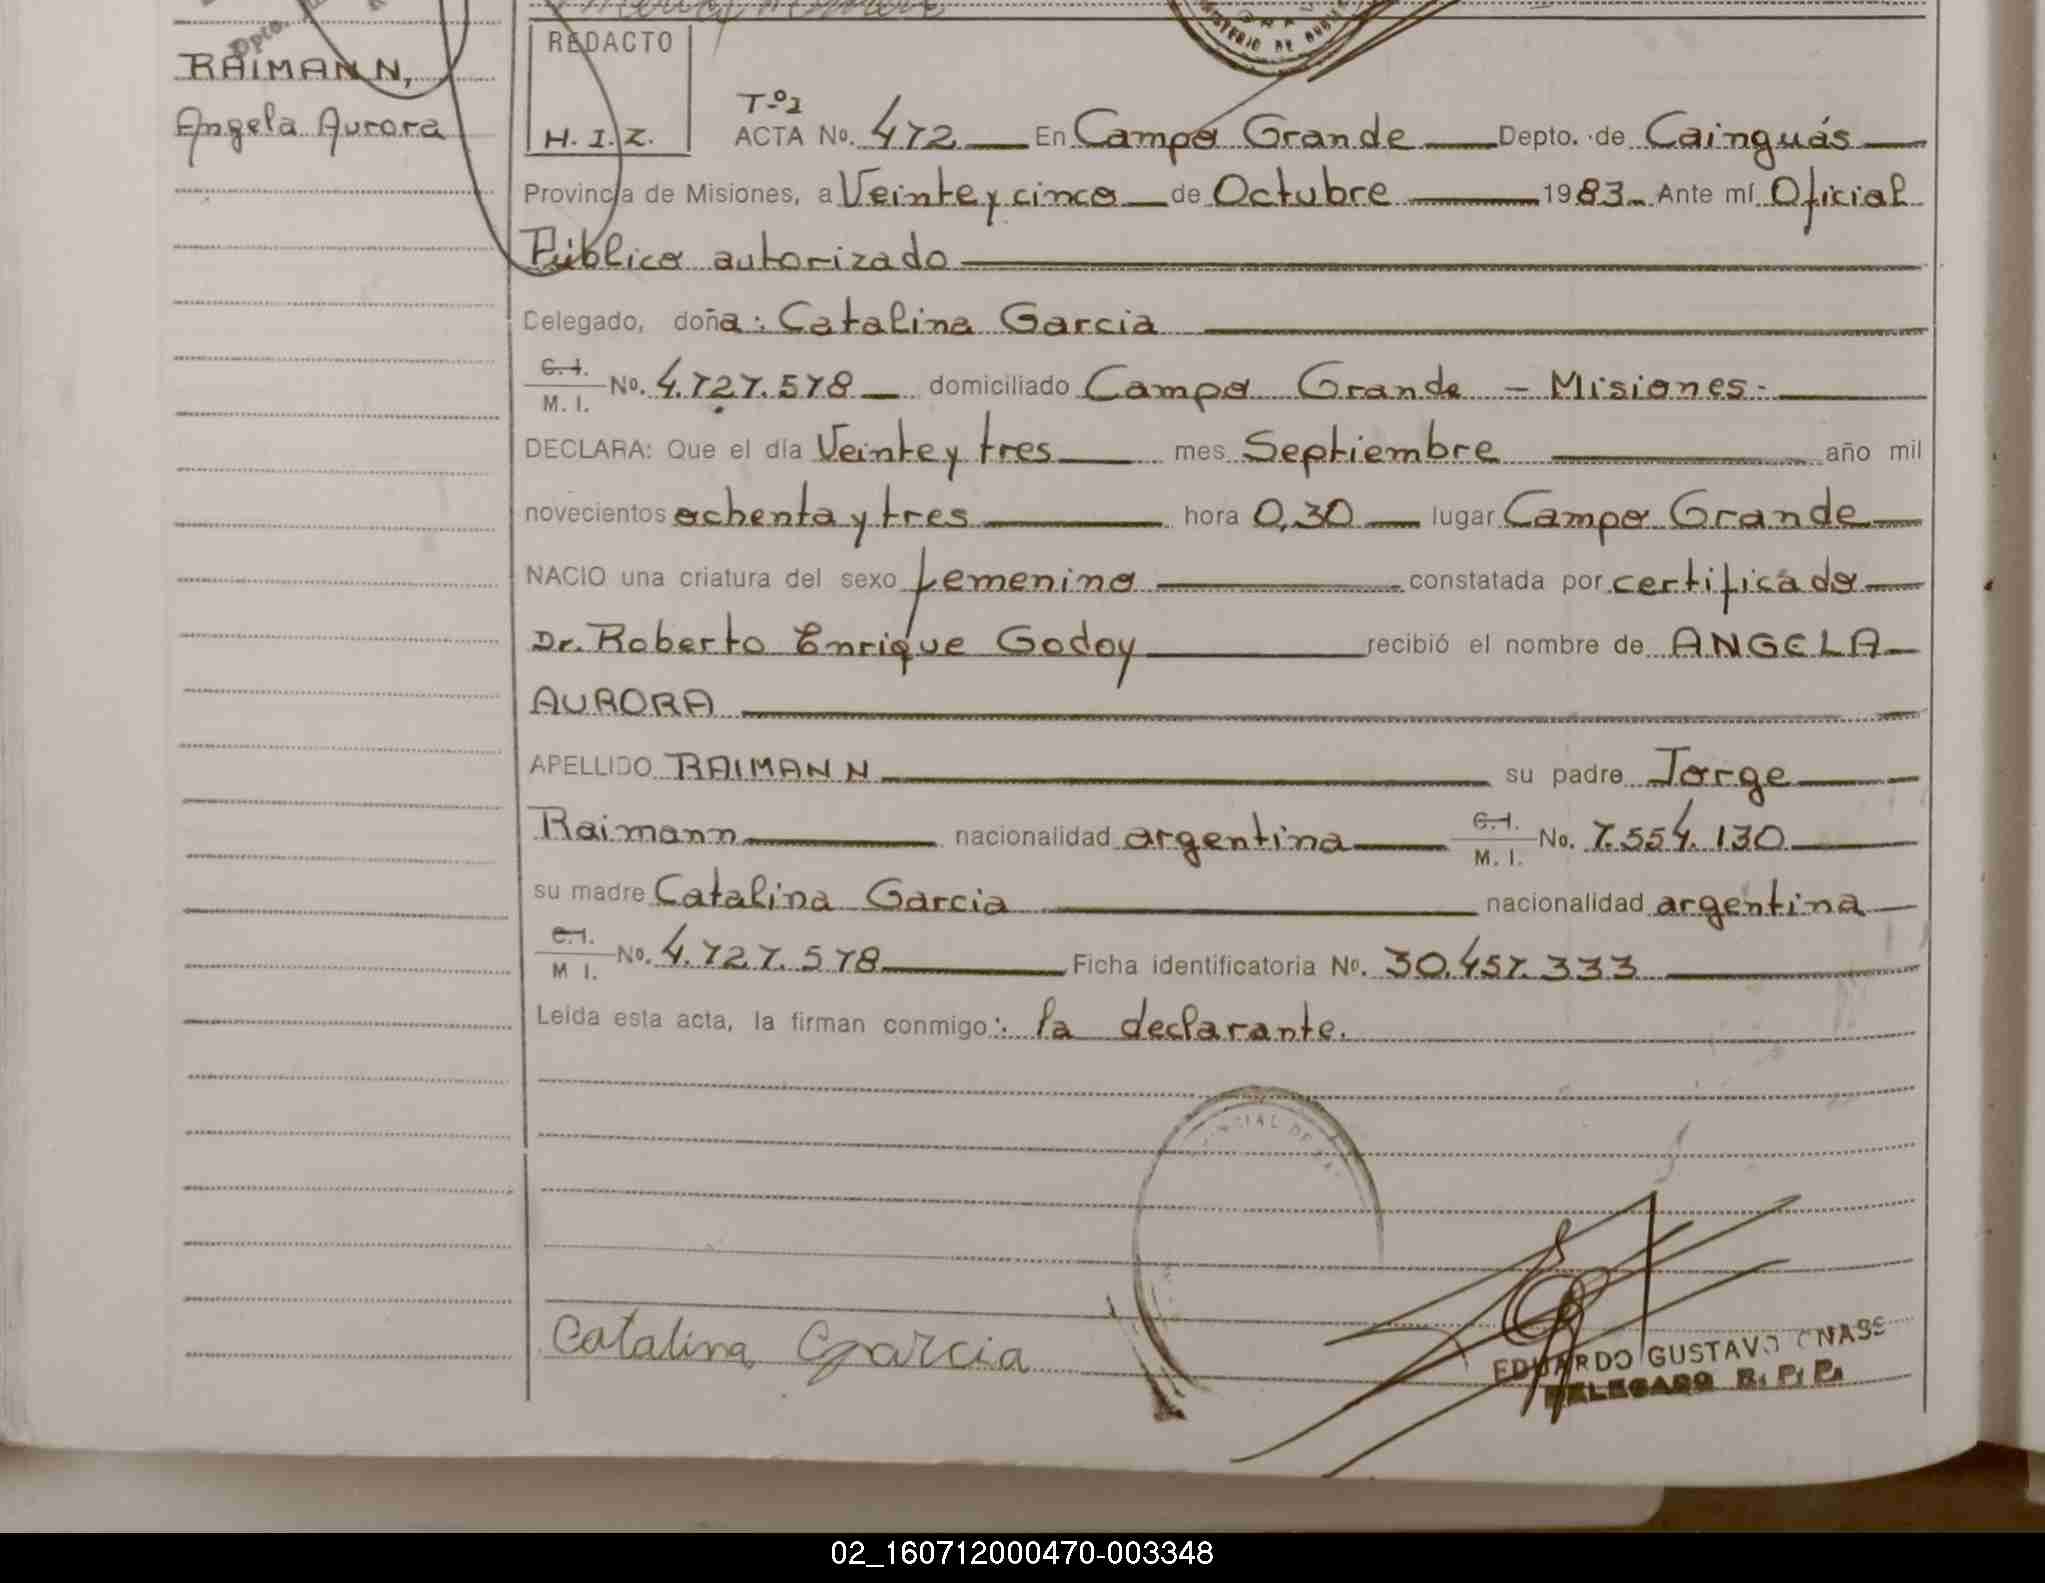 RAIMANN,
Angela Aurora
REDACTO
H. I. Z.
T-º2
ACTA No. 472 En Campo Grande Depto. de Cainguás
Provincia de Misiones, a Veinte y cinco de Octubre 1983 Ante mí Oficial
Público autorizado
Delegado, doña: Catalina Garcia
C. I.
M. I. No. 4.727.578 domiciliado Campo Grande - Misiones.
DECLARA: Que el día Veinte y tres mes Septiembre año mil
novecientos ochenta y tres hora 0,30 lugar Campo Grande
NACIO una criatura del sexo femenino constatada por certificado
Dr. Roberto Enrique Godoy recibió el nombre de ANGELA
AURORA
APELLIDO RAIMANN su padre Jorge
Raimann nacionalidad argentina C. I. M. I. No. 7.554.130
su madre Catalina Garcia nacionalidad argentina
C. I.
M I. No. 4.727.578 Ficha identificatoria No. 30.457.333
Leída esta acta, la firman conmigo: la declarante.
Catalina Garcia
EDUARDO GUSTAVO
DELEGADO R. P. P.
02_160712000470-003348